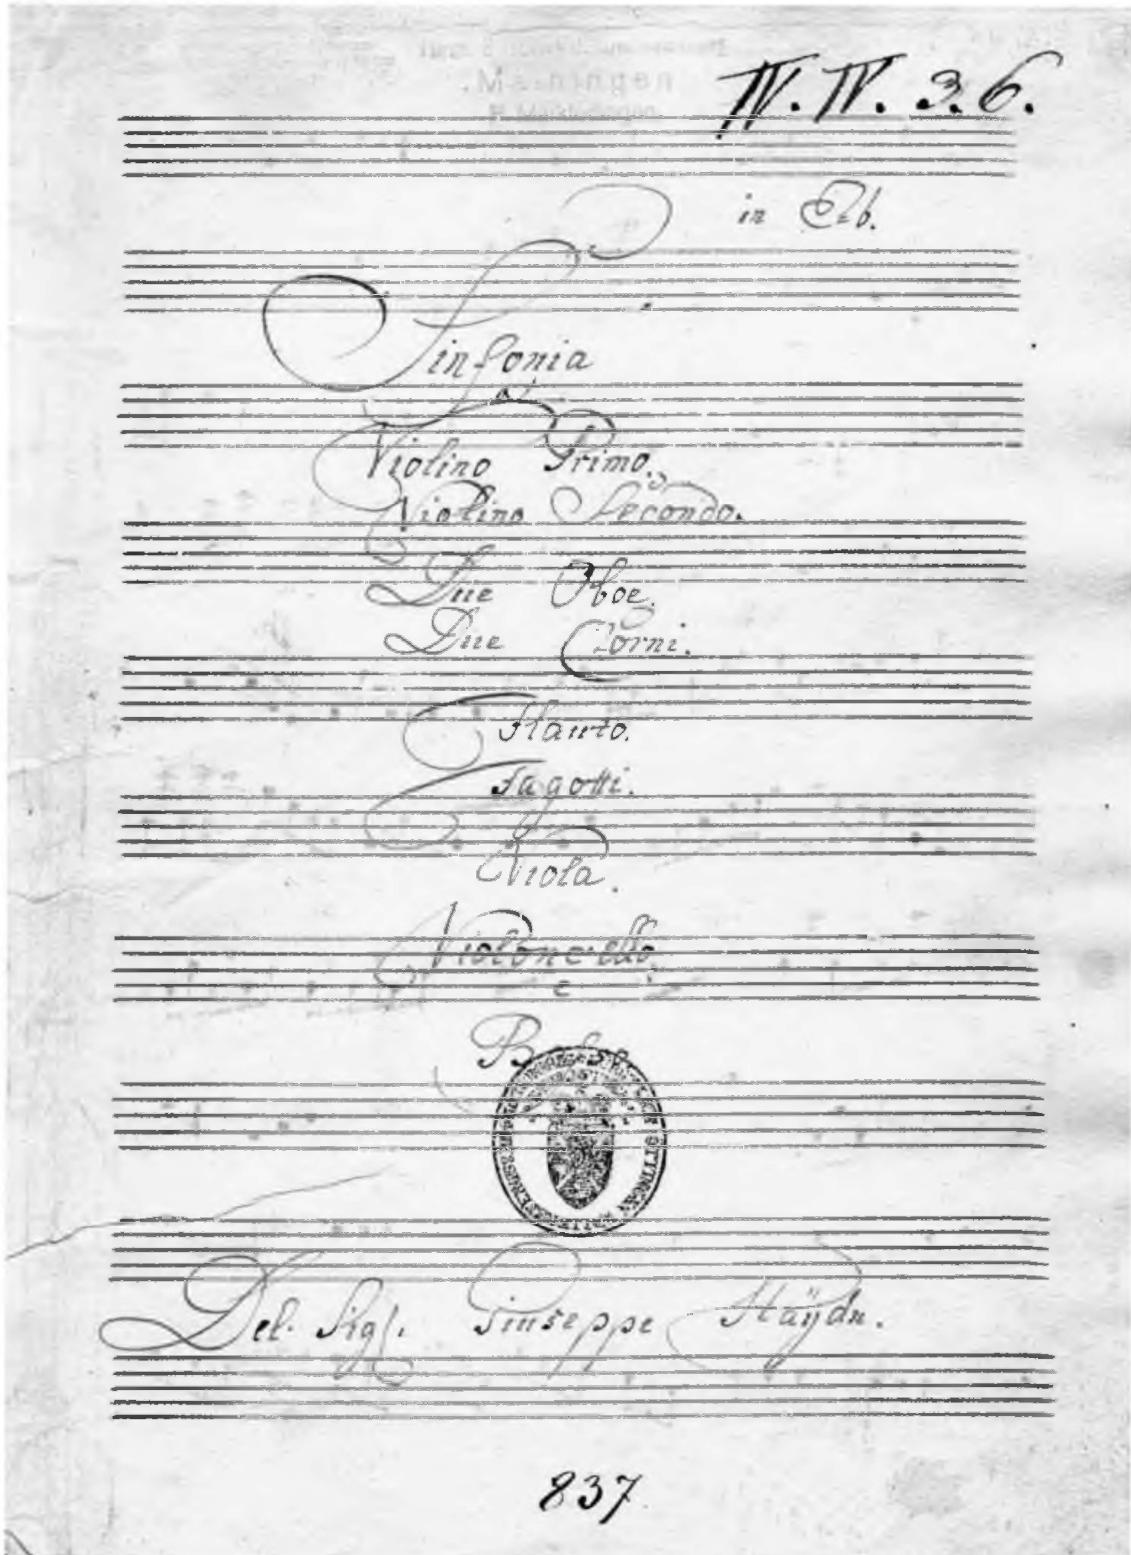 Maihingen
IV. IV. 3. 6.
in Eb.
Sinfonia
a
Violino Primo.
Violino Secondo.
Due Oboe.
Due Corni.
Flauto.
Fagotti.
Viola.
Violoncello
e
Basso
Del. Sigl. Giuseppe Haÿdn.
837